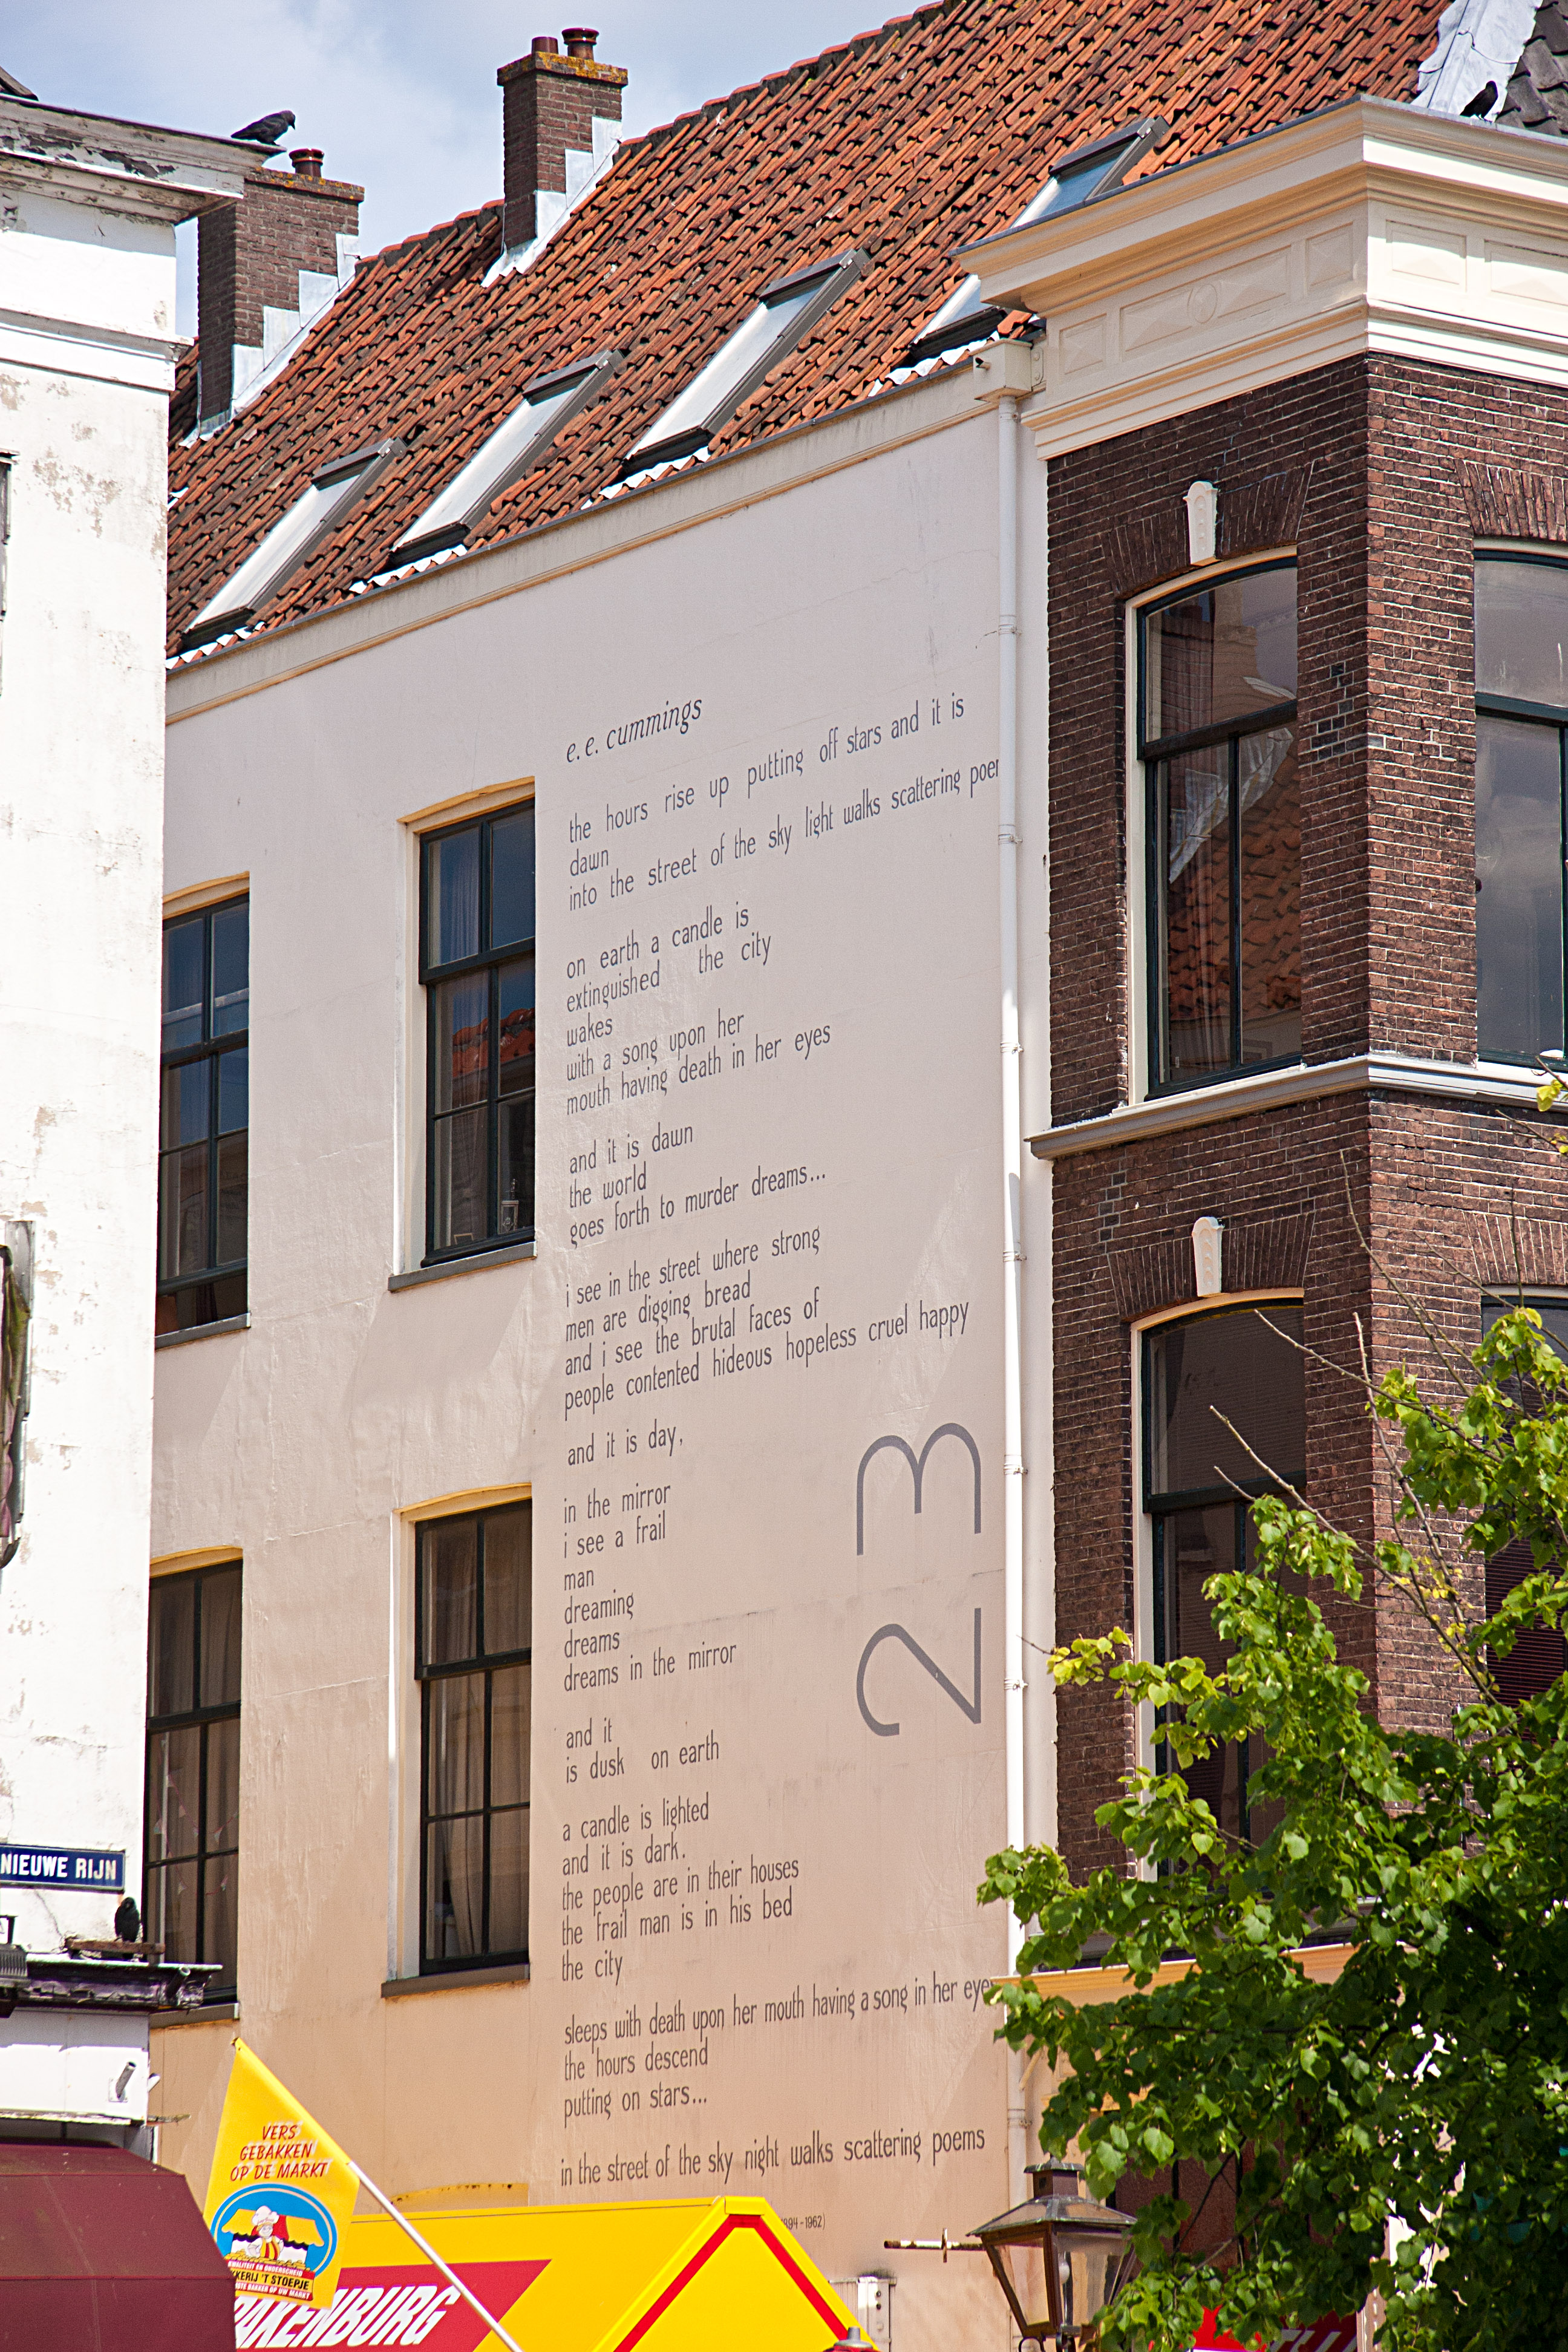 e.e. cummings
the hours rise up putting off stars and it is
dawn
into the street of the sky light walks scattering
on earth a candle is
extinguished the city
wakes
with a song upon her
mouth having death in her eyes
and it is dawn
the world
goes forth to murder dreams...
i see in the street where strong
men are digging bread
and i see the brutal faces of
people contented hideous hopeless cruel happy
and it is day,
in the mirror
i see a frail
man
dreaming
dreams
dreams in the mirror
and it
is dusk on earth
a candle is lighted
and it is dark.
the people are in their houses
the frail man is in his bed
the city
sleeps with death upon her mouth having a song in her eyes
the hours descend
putting on stars...
in the street of the sky night walks scattering poems
23
NIEUWE RIJN
VERS
GEBAKKEN
OP DE MARKT
KWALITEIT EN ONDERSCHEID
KKERIJ 'T STOEPJE
STE BAKKER OP UW MARKT
AKENBURG
894-1962)